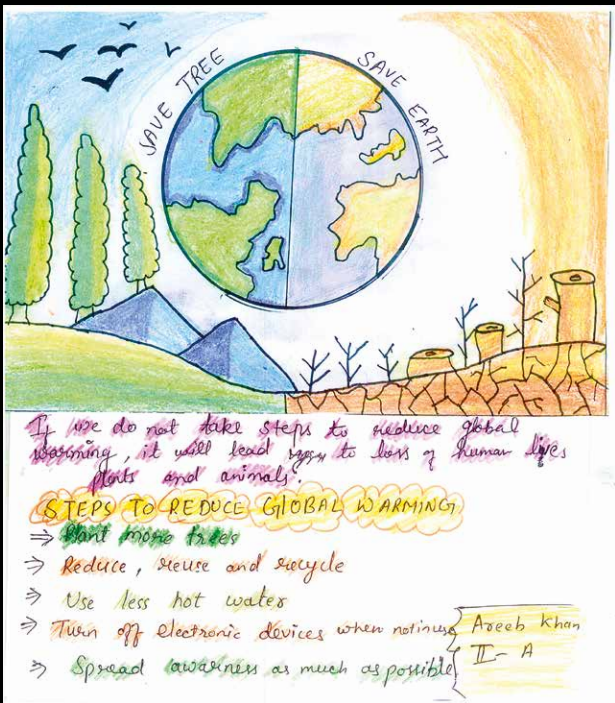 SAVE TREE
SAVE EARTH
If we do not take steps to reduce global
warming, it will lead to loss of human lives
plants and animals.
STEPS TO REDUCE GLOBAL WARMING
⇒ Plant more trees
⇒ Reduce, reuse and recycle
⇒ Use less hot water
⇒ Turn off electronic devices when not in use
⇒ Spread awarness as much as possible
Areeb Khan
II - A